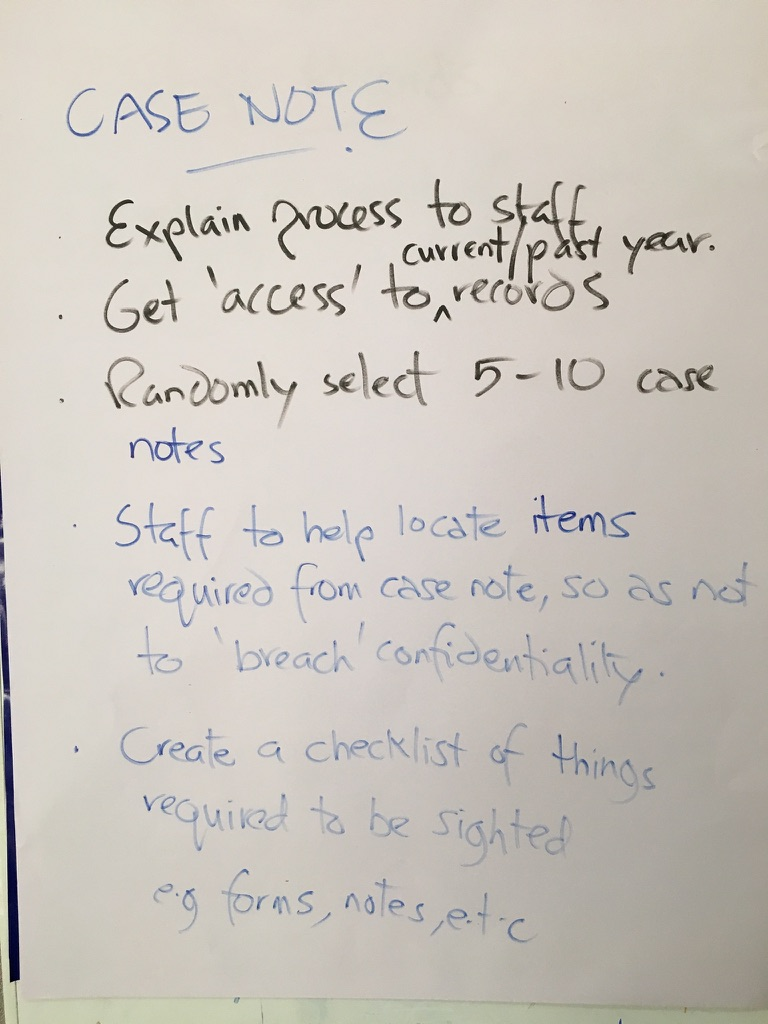 CASE NOTE
. Explain process to staff
current/past year.
. Get 'access' to ^ records
. Randomly select 5-10 case
notes
. Staff to help locate items
required from case note, so as not
to 'breach' confidentiality.
. Create a checklist of things
required to be sighted
e.g forms, notes, e.t.c